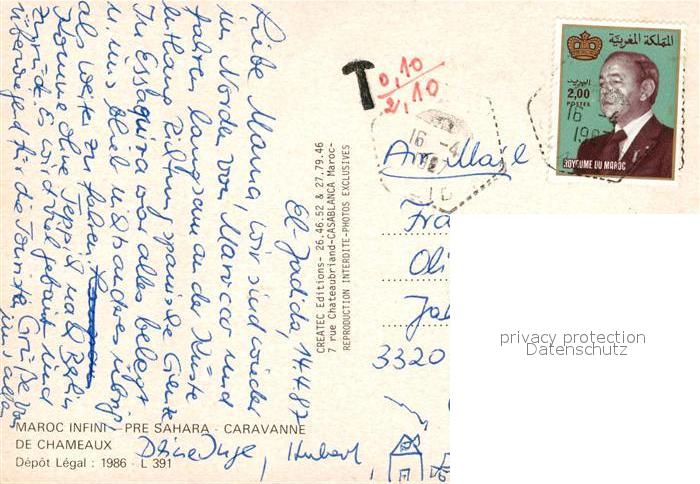 El Jadida, 14.4.87
Liebe Mama, wir sind wieder
im Norden von Marocco und
fahren langsam an der Küste
entlang Richtung spanische Grenze
In Essaouira war alles belegt
u. uns blieb nichts anderes übrig,
als weiter zu fahren.
Komme ohne Teppich nach Berlin
zurück. Es wird viel gebaut und
überwiegend für die Touristen. Grüße von
uns allen
Deine Inge, Hubert,
MAROC INFINI - PRE SAHARA - CARAVANNE
DE CHAMEAUX
Dépôt Légal : 1986 - L 391
CREATEC Editions- 26.46.52 & 27.79.46
7 rue Chateaubriand-CASABLANCA Maroc-
REPRODUCTION INTERDITE-PHOTOS EXCLUSIVES
T 0,10
2,10
16 -4
1987
16
Air Mail
Fra
Oli
Jab
3320
المملكة المغربية
البريد
2,00
POSTES
16
ROYAUME DU MAROC
privacy protection
Datenschutz